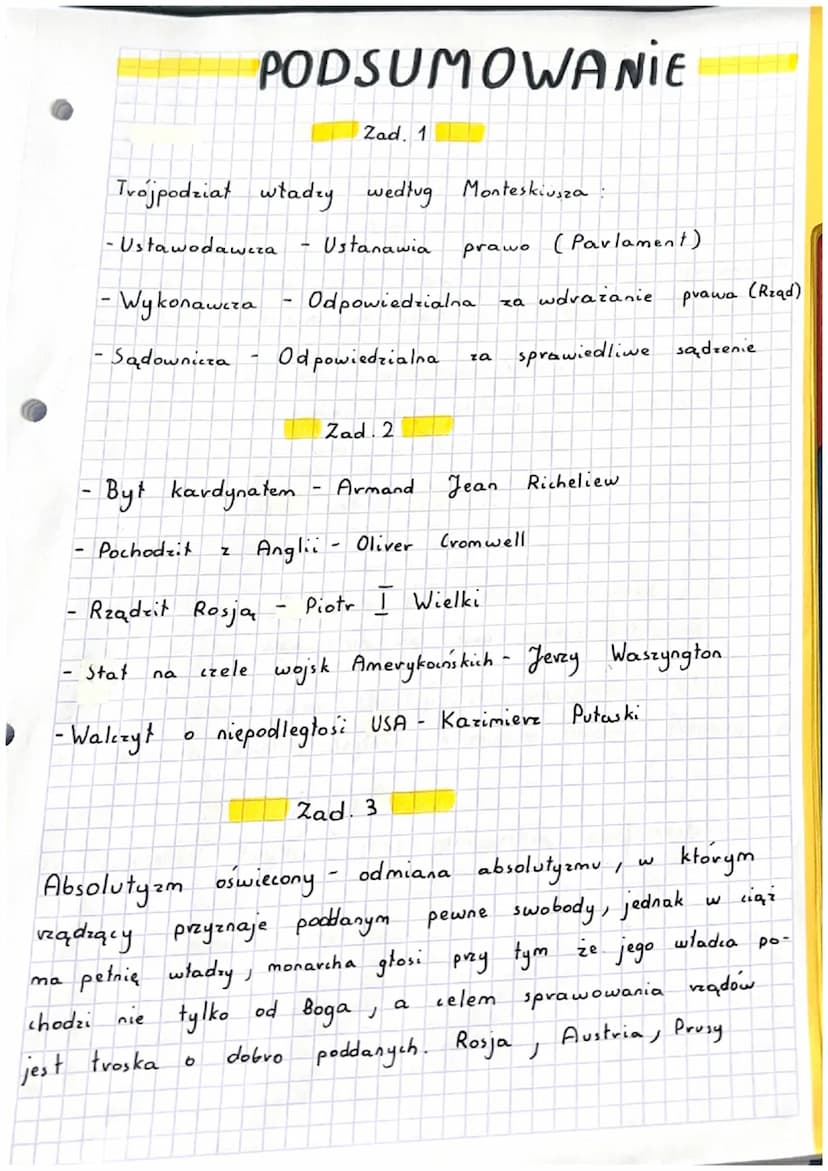 PODSUMOWANIE
Zad. 1
Trójpodział władzy według Monteskiusza:
- Ustawodawcza - Ustanawia prawo (Parlament)
- Wykonawcza - Odpowiedzialna za wdrażanie prawa (Rząd)
- Sądownicza - Odpowiedzialna za sprawiedliwe sądzenie
Zad. 2
- Był kardynałem - Armand Jean Richeliew
- Pochodził z Anglii - Oliver Cromwell
- Rządził Rosją - Piotr I Wielki
- Stał na czele wojsk Amerykańskich - Jerzy Waszyngton
- Walczył o niepodległość USA - Kazimierz Pułaski
Zad. 3
Absolutyzm oświecony - odmiana absolutyzmu, w którym
rządzący przyznaje poddanym pewne swobody, jednak w ciąż
ma pełnię władzy, monarcha głosi przy tym że jego władca po-
chodzi nie tylko od Boga, a celem sprawowania rządów
jest troska o dobro poddanych. Rosja, Austria, Prusy